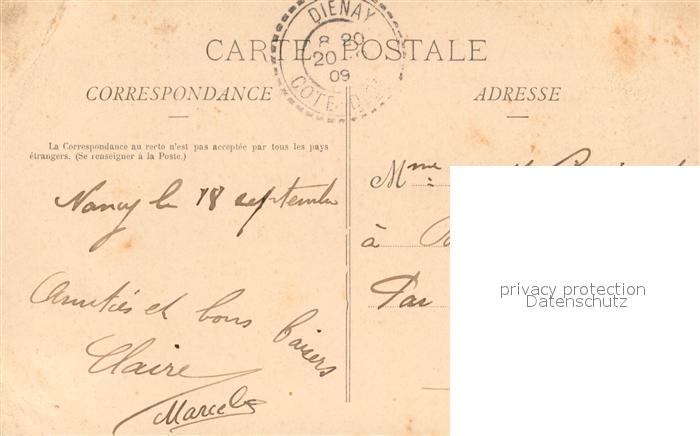 CARTE POSTALE
DIENAY
8 20
20
09
COTE-D'
CORRESPONDANCE
ADRESSE
La Correspondance au recto n'est pas acceptée par tous les pays
étrangers. (Se renseigner à la Poste.)
Nancy le 18 septembre
Amitiés et bons baisers
Claire
Marcel
Mme
à
Par
privacy protection
Datenschutz